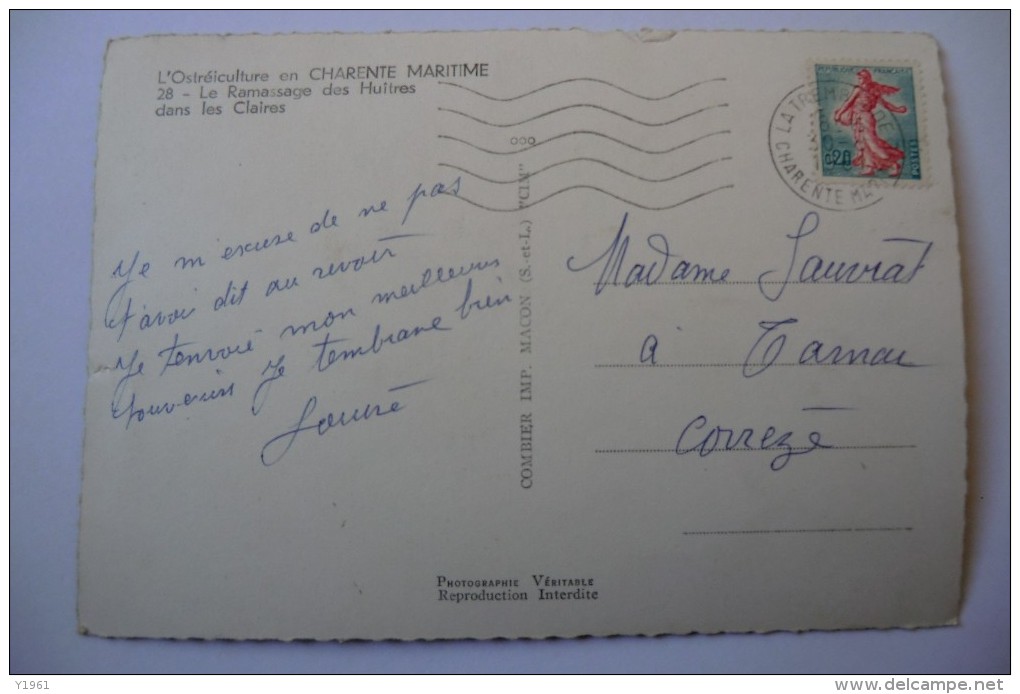 L'Ostréiculture en CHARENTE MARITIME
28 - Le Ramassage des Huîtres
dans les Claires
Je m'excuse de ne pas
t'avoi dit au revoir
Je t'envoie mon meilleurs
souvenirs Je tembrase bien
Louise
COMBIER IMP. MACON (S.-et-L.) "CIM"
REPUBLIQUE FRANÇAISE
0,20
POSTES
LA TREMBLADE
CHARENTE MME
Madame Sauviat
à Tarnac
Corrèze
PHOTOGRAPHIE VÉRITABLE
Reproduction Interdite
Y1961
www.delcampe.net